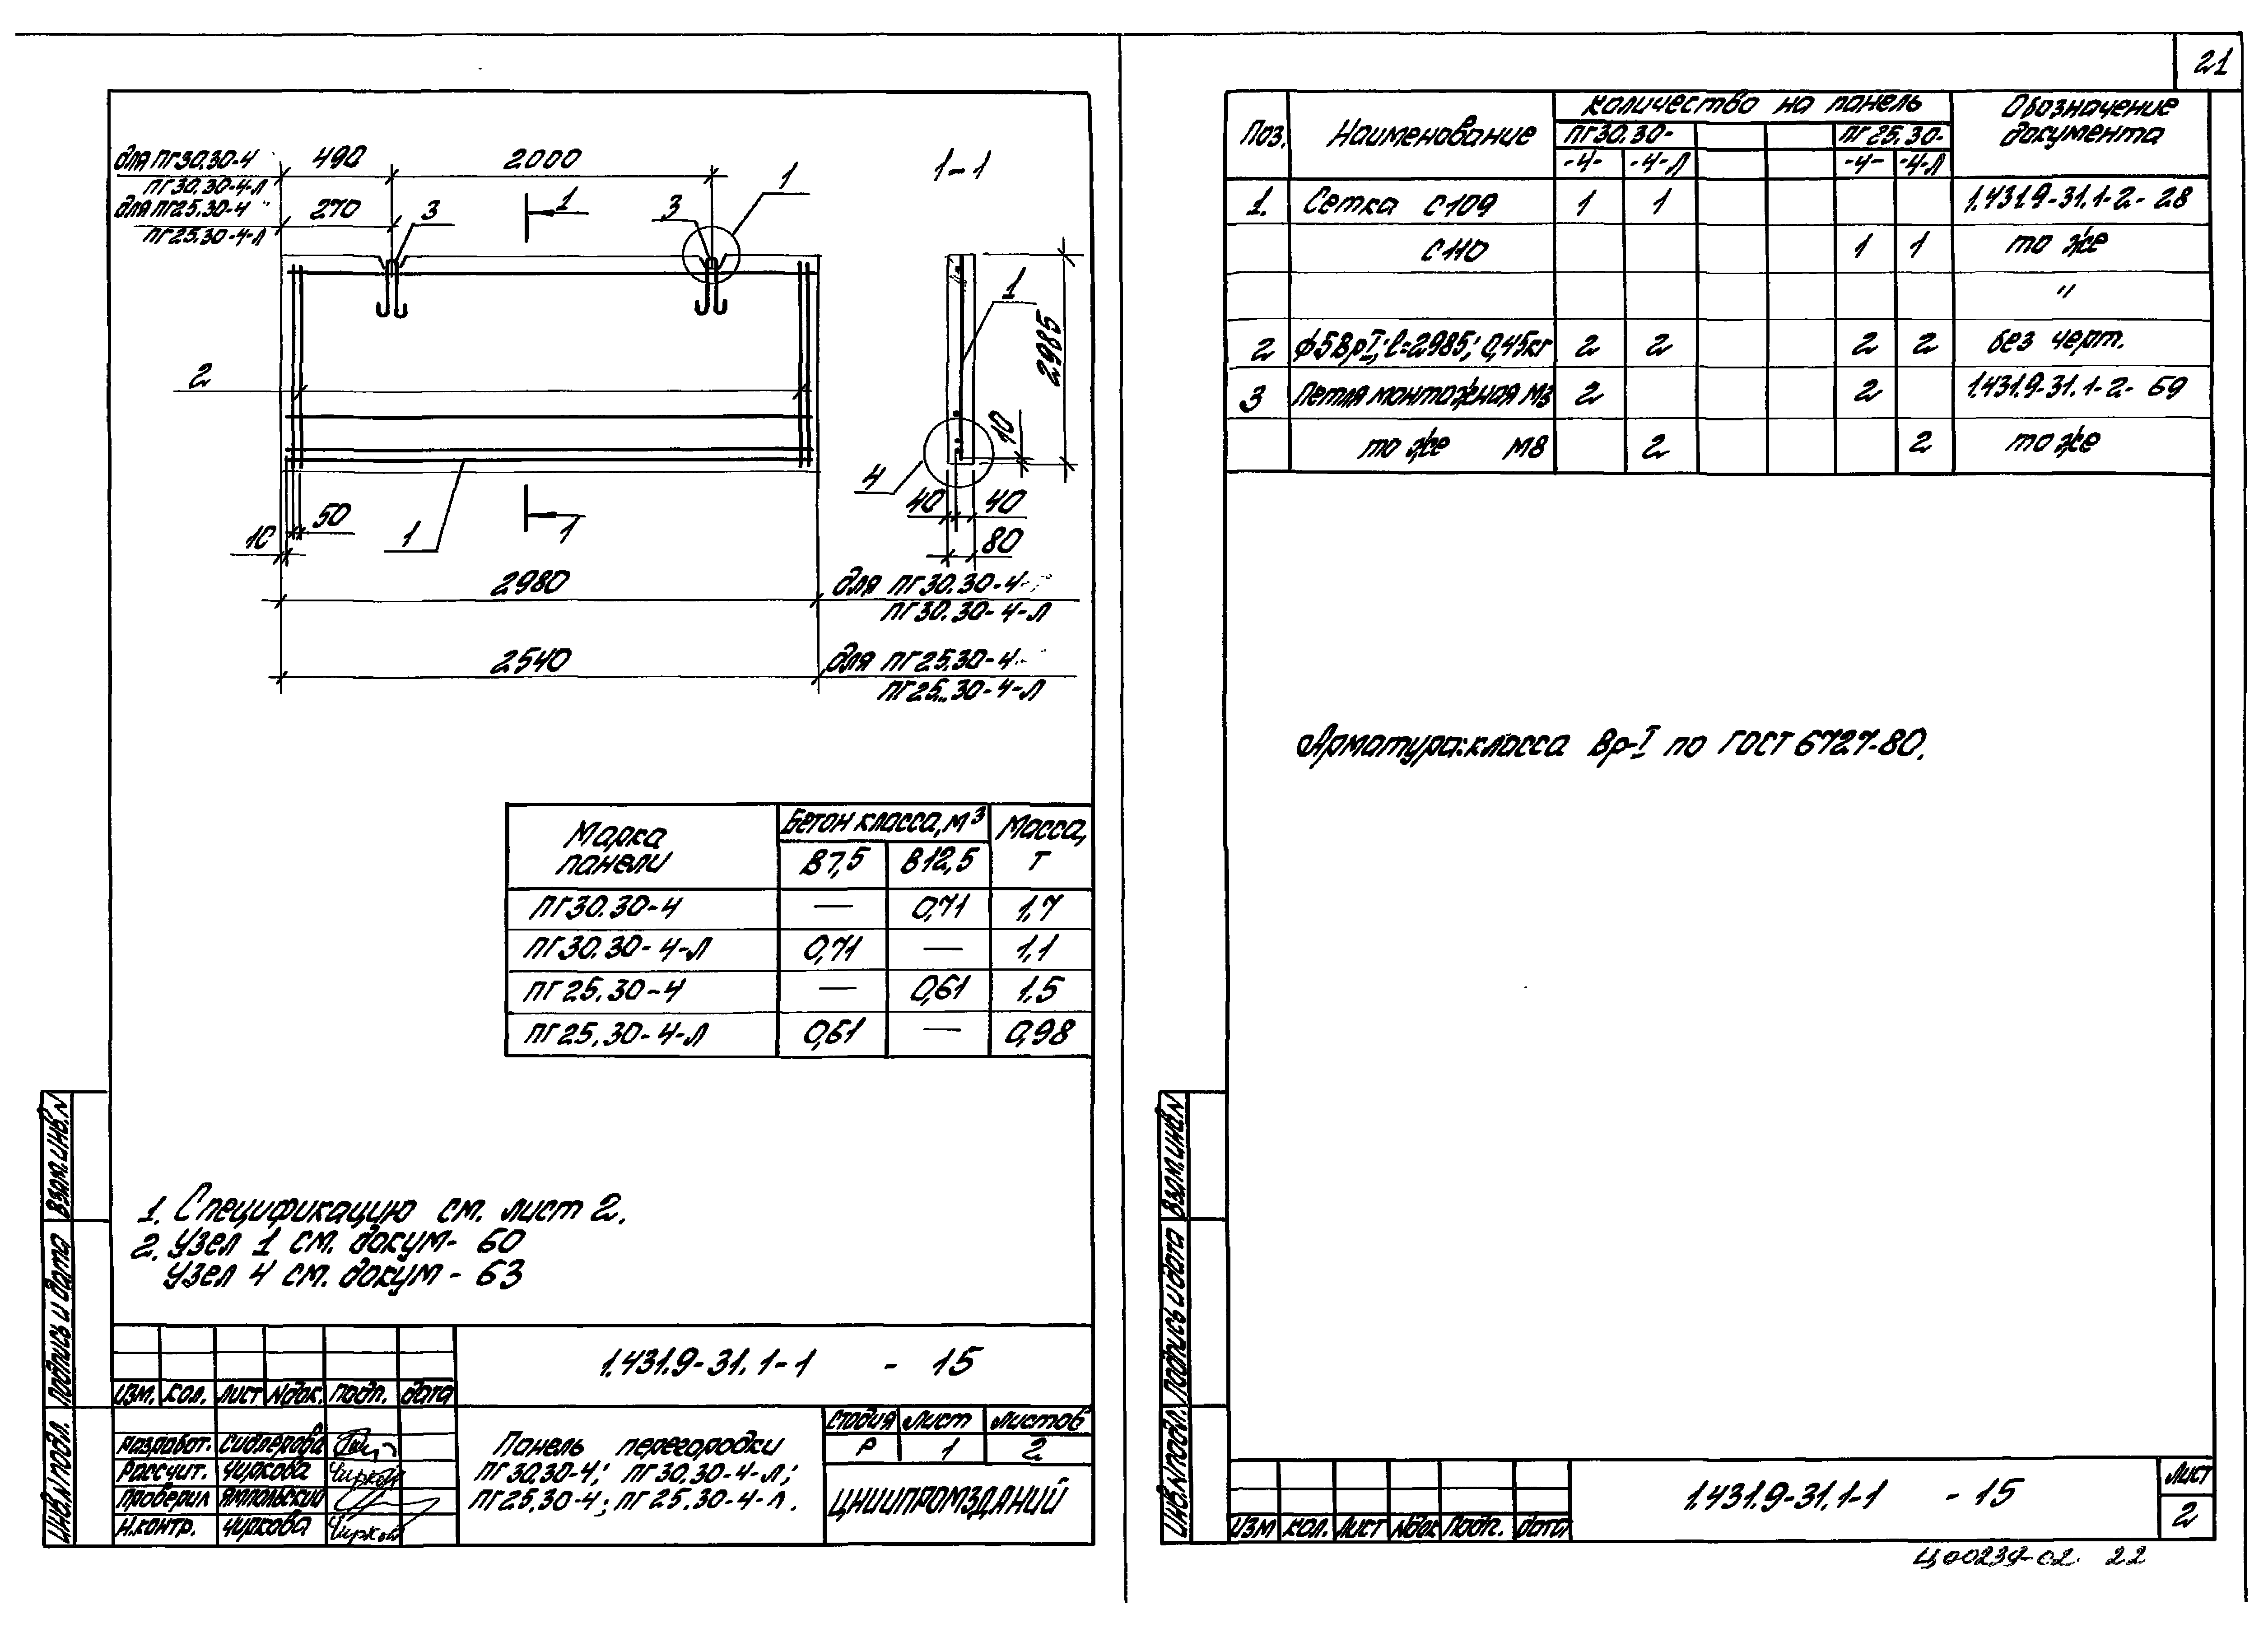 21
для ПГ30.30-4
ПГ30.30-4-Л
для ПГ25.30-4
ПГ25.30-4-Л
490
2000
270
3
1
3
1
1-1
2
1
2985
10
4
40
40
80
50
10
1
1
2980
для ПГ30.30-4-
ПГ30.30-4-Л
2540
для ПГ25.30-4-
ПГ25.30-4-Л
Марка панели
Бетон класса, м³
Масса, т
В7,5
В12,5
ПГ30.30-4 — 0,71 1,7
ПГ30.30-4-Л 0,71 — 1,1
ПГ25.30-4 — 0,61 1,5
ПГ25.30-4-Л 0,61 — 0,98
1. Спецификацию см. лист 2.
2. Узел 1 см. докум- 60
Узел 4 см. докум - 63
Взам. инв. N
Подпись и дата
Инв. N подл.
1.431.9-31.1-1 - 15
Изм. Кол. Лист Nдок. Подп. Дата
Разработ. Сидлерова
Рассчит. Чиркова Чиркова
Проверил Ямпольский
Н.контр. Чиркова Чиркова
Панель перегородки
ПГ30.30-4; ПГ30.30-4-Л;
ПГ25.30-4; ПГ25.30-4-Л.
Стадия Лист Листов
Р 1 2
ЦНИИПРОМЗДАНИЙ
Поз. Наименование Количество на панель Обозначение документа
ПГ30.30- ПГ25.30-
-4- -4-Л -4- -4-Л
1. Сетка С109 1 1 1.431.9-31.1-2-28
С110 1 1 то же
"
2 ф5ВрI; ℓ=2985; 0,45кг 2 2 2 2 без черт.
3 Петля монтажная М3 2 2 1.431.9-31.1-2-69
то же М8 2 2 то же
Арматура: класса Вр-I по ГОСТ 6727-80.
Взам. инв. N
Подпись и дата
Инв. N подл.
Изм Кол. Лист Nдок Подп. Дата
1.431.9-31.1-1 - 15
Лист
2
Ц00239-02 22